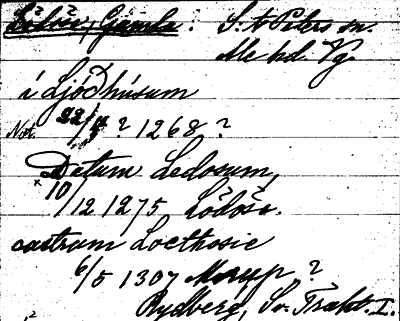 Lödöse, Gamla. S:t Peters sn.
Ale hd. Vg.
í Ljóðhúsum
Not. 22/4 ? 1268 ?
Datum Ledosum,
10/12 1275 Lödöse.
castrum Loethosie
6/5 1307 Morup ?
Rydberg, Sv. Trakt. I.